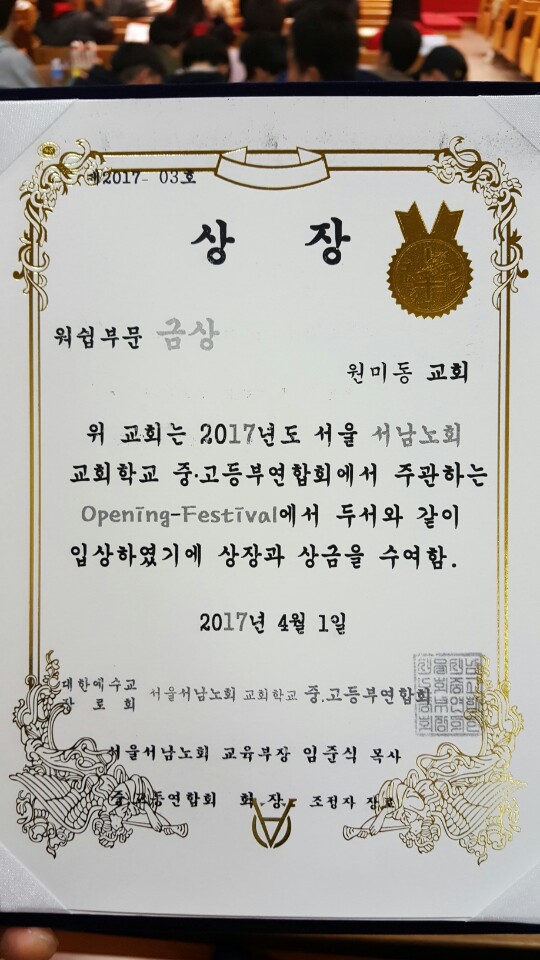 제2017- 03호
상 장
워쉽부문 금상
원미동 교회
위 교회는 2017년도 서울 서남노회
교회학교 중.고등부연합회에서 주관하는
Opening-Festival에서 두서와 같이
입상하였기에 상장과 상금을 수여함.
2017년 4월 1일
대한예수교
장 로 회
서울서남노회 교회학교 중.고등부연합회
서울서남노회 교육부장 임준식 목사
중.고등연합회 회 장 조점자 장로